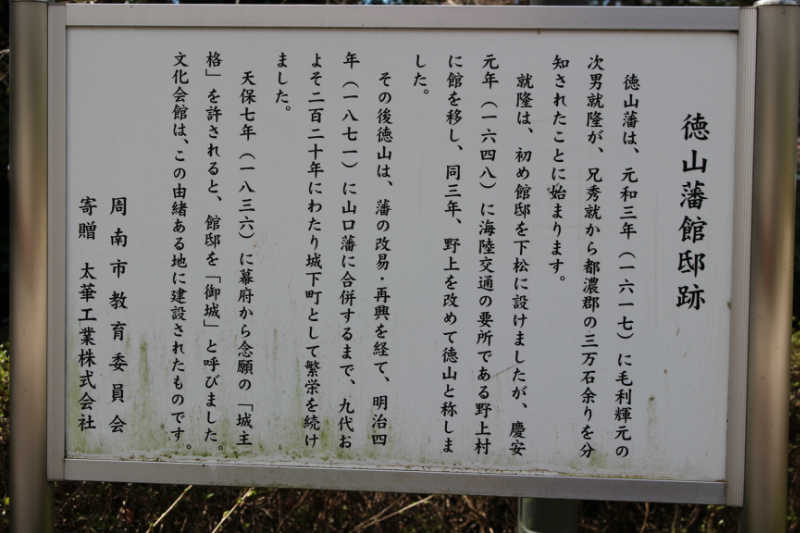 徳山藩館邸跡
徳山藩は、元和三年（一六一七）に毛利輝元の
次男就隆が、兄秀就から都濃郡の三万石余りを分
知されたことに始まります。
就隆は、初め館邸を下松に設けましたが、慶安
元年（一六四八）に海陸交通の要所である野上村
に館を移し、同三年、野上を改めて徳山と称しま
した。
その後徳山は、藩の改易・再興を経て、明治四
年（一八七一）に山口藩に合併するまで、九代お
よそ二百二十年にわたり城下町として繁栄を続け
ました。
天保七年（一八三六）に幕府から念願の「城主
格」を許されると、館邸を「御城」と呼びました。
文化会館は、この由緒ある地に建設されたものです。
周南市教育委員会
寄贈 太華工業株式会社